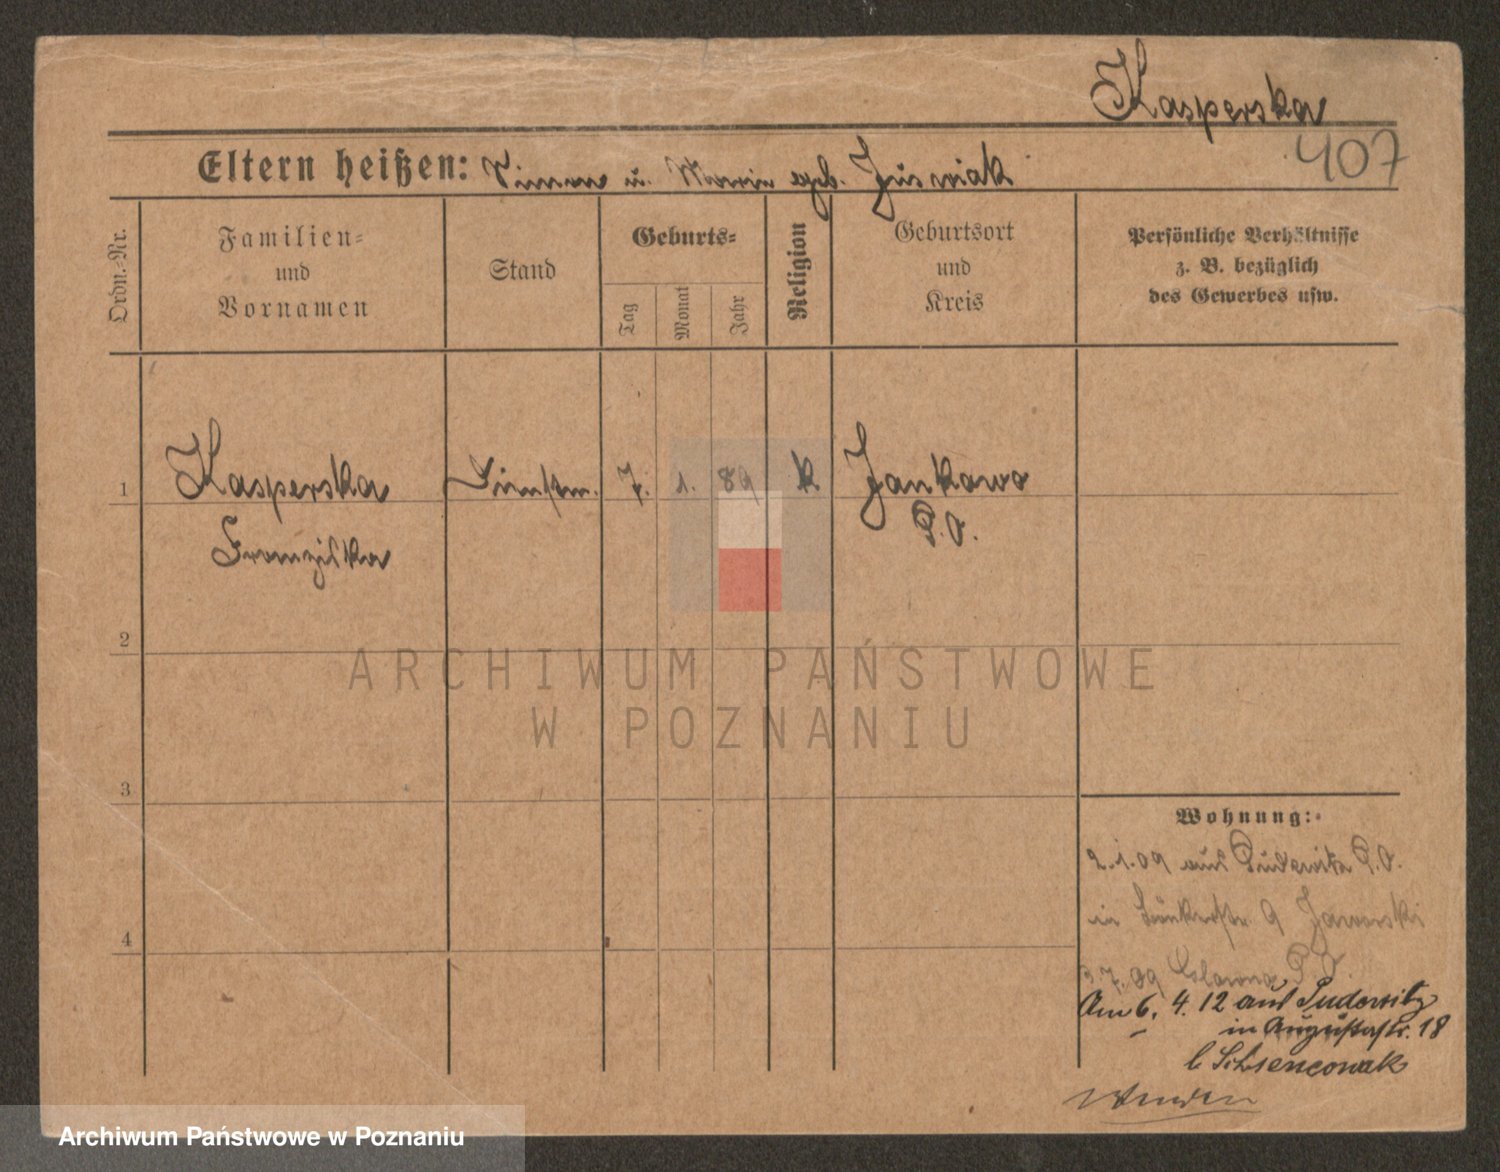 Kasperska
407
Eltern heißen: Simon u. Marie geb. Juswiak
Ordn.-Nr.
Familien-
und
Vornamen
Stand
Geburts-
Tag
Monat
Jahr
Religion
Geburtsort
und
Kreis
Persönliche Verhältnisse
z. B. bezüglich
des Gewerbes usw.
1
Kasperska
Dienstm.
7.
1.
89
k
Jankowo
Franziska
P.O.
2
3
4
Wohnung:
2.1.09 aus Pudewitz P.O.
in 9 Jaworski
3.7.09 P.O.
Am 6. 4. 12 aus Pudewitz
in Augustastr. 18
b
ARCHIWUM PAŃSTWOWE
W POZNANIU
Archiwum Państwowe w Poznaniu